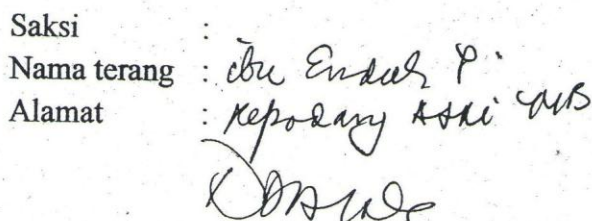 Saksi :
Nama terang : ibu Endah P.
Alamat : Kepodang Asri